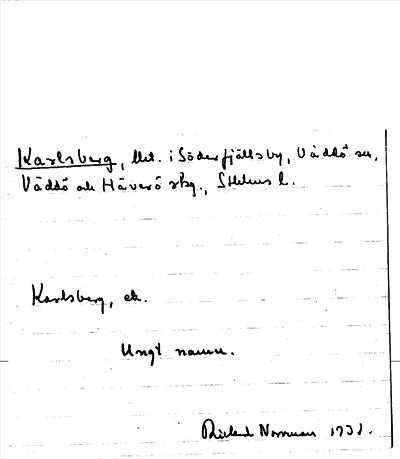 Karlsberg, lht. i Söderfjällsby, Väddö sn,
Väddö och Häverö skg., Sthlms l.
Karlsberg, ek.
Ungt namn.
Rickard Norrman 193